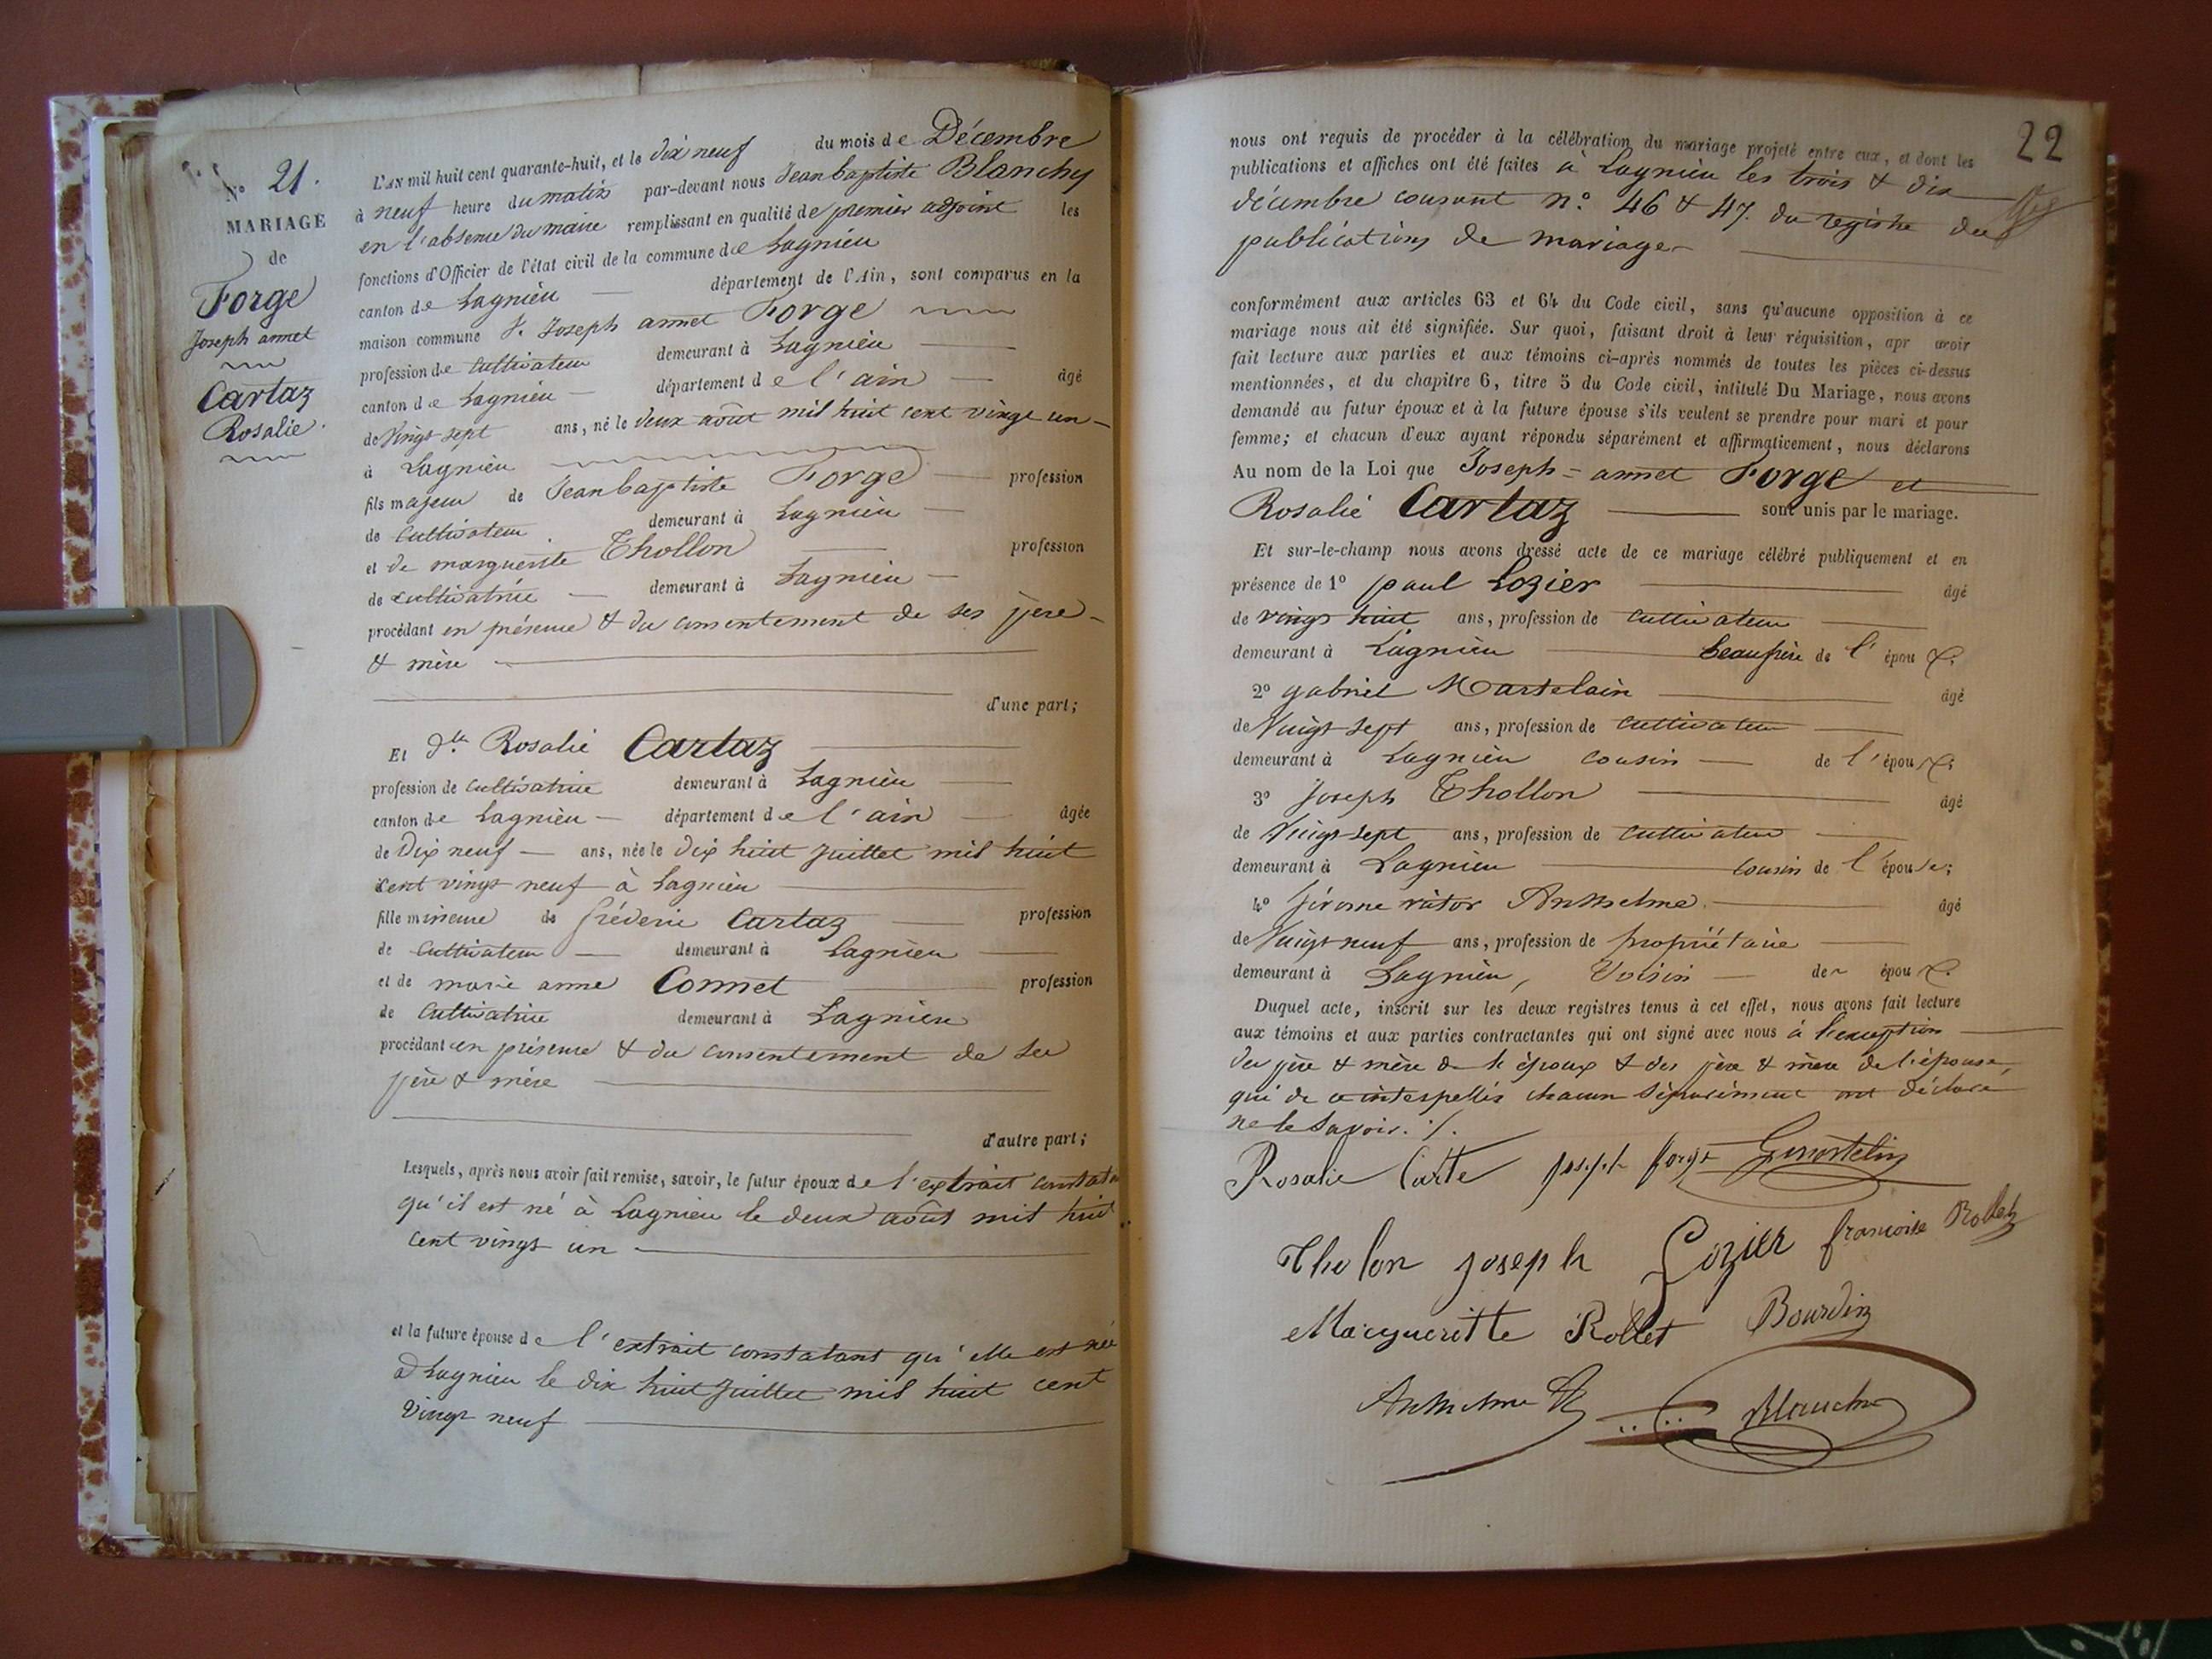 N° 21.
MARIAGE
de
Forge
Joseph annet
Cartaz
Rosalie.
L'AN mil huit cent quarante-huit, et le dix neuf du mois de Décembre
à neuf heure du matin par-devant nous Jean baptiste Blanchy
en l'absence du maire remplissant en qualité de premier adjoint les
fonctions d'Officier de l'état civil de la commune de Lagnieu
canton de Lagnieu département de l'Ain, sont comparus en la
maison commune S. Joseph annet Forge
profession de cultivateur demeurant à Lagnieu
canton de Lagnieu département de l'ain âgé
de Vingt sept ans, né le deux août mil huit cent vingt un
à Lagnieu
fils majeur de Jean baptiste Forge profession
de cultivateur demeurant à Lagnieu
et de marguerite Thollon profession
de cultivatrice demeurant à Lagnieu
procédant en présence & du consentement de ses père
& mère
d'une part;
Et dlle Rosalie Cartaz
profession de cultivatrice demeurant à Lagnieu
canton de Lagnieu département de l'ain âgée
de Dix neuf ans, née le dix huit juillet mil huit
cent vingt neuf à Lagnieu
fille mineure de fréderic Cartaz profession
de cultivateur demeurant à Lagnieu
et de marie anne Connet profession
de cultivatrice demeurant à Lagnieu
procédant en présence & du consentement de ses
père & mère
d'autre part;
Lesquels, après nous avoir fait remise, savoir, le futur époux de l'extrait constatant
qu'il est né à Lagnieu le deux août mil huit
cent vingt un
et la future épouse de l'extrait constatant qu'elle est née
à Lagnieu le dix huit juillet mil huit cent
vingt neuf
22
nous ont requis de procéder à la célébration du mariage projeté entre eux, et dont les
publications et affiches ont été faites à Lagnieu les trois & dix
décembre courant n°. 46 & 47 du registre des
publications de mariage
conformément aux articles 63 et 64 du Code civil, sans qu'aucune opposition à ce
mariage nous ait été signifiée. Sur quoi, faisant droit à leur réquisition, apr avoir
fait lecture aux parties et aux témoins ci-après nommés de toutes les pièces ci-dessus
mentionnées, et du chapitre 6, titre 5 du Code civil, intitulé Du Mariage, nous avons
demandé au futur époux et à la future épouse s'ils veulent se prendre pour mari et pour
femme; et chacun d'eux ayant répondu séparément et affirmativement, nous déclarons
Au nom de la Loi que Joseph-annet Forge et
Rosalie Cartaz sont unis par le mariage.
Et sur-le-champ nous avons dressé acte de ce mariage célébré publiquement et en
présence de 1° paul Lozier âgé
de vingt huit ans, profession de cultivateur
demeurant à Lagnieu beaufrère de l'époux;
2° gabriel Martelain âgé
de Vingt sept ans, profession de cultivateur
demeurant à Lagnieu cousin de l'époux;
3° joseph Thollon âgé
de Vingt sept ans, profession de cultivateur
demeurant à Lagnieu cousin de l'épouse;
4° jérome victor Anthelme âgé
de Vingt neuf ans, profession de propriétaire
demeurant à Lagnieu, Voisin de époux.
Duquel acte, inscrit sur les deux registres tenus à cet effet, nous avons fait lecture
aux témoins et aux parties contractantes qui ont signé avec nous à l'exception
des père & mère de l'époux & des père & mère de l'épouse,
qui de ce interpellés chacun séparément ont déclaré
ne le savoir. ./.
Rosalie Carte joseph forge Gmortelin
Tholon joseph Lozier francoise Rollet
Margueritte Rollet Bourdin
Anthelme Blanchy